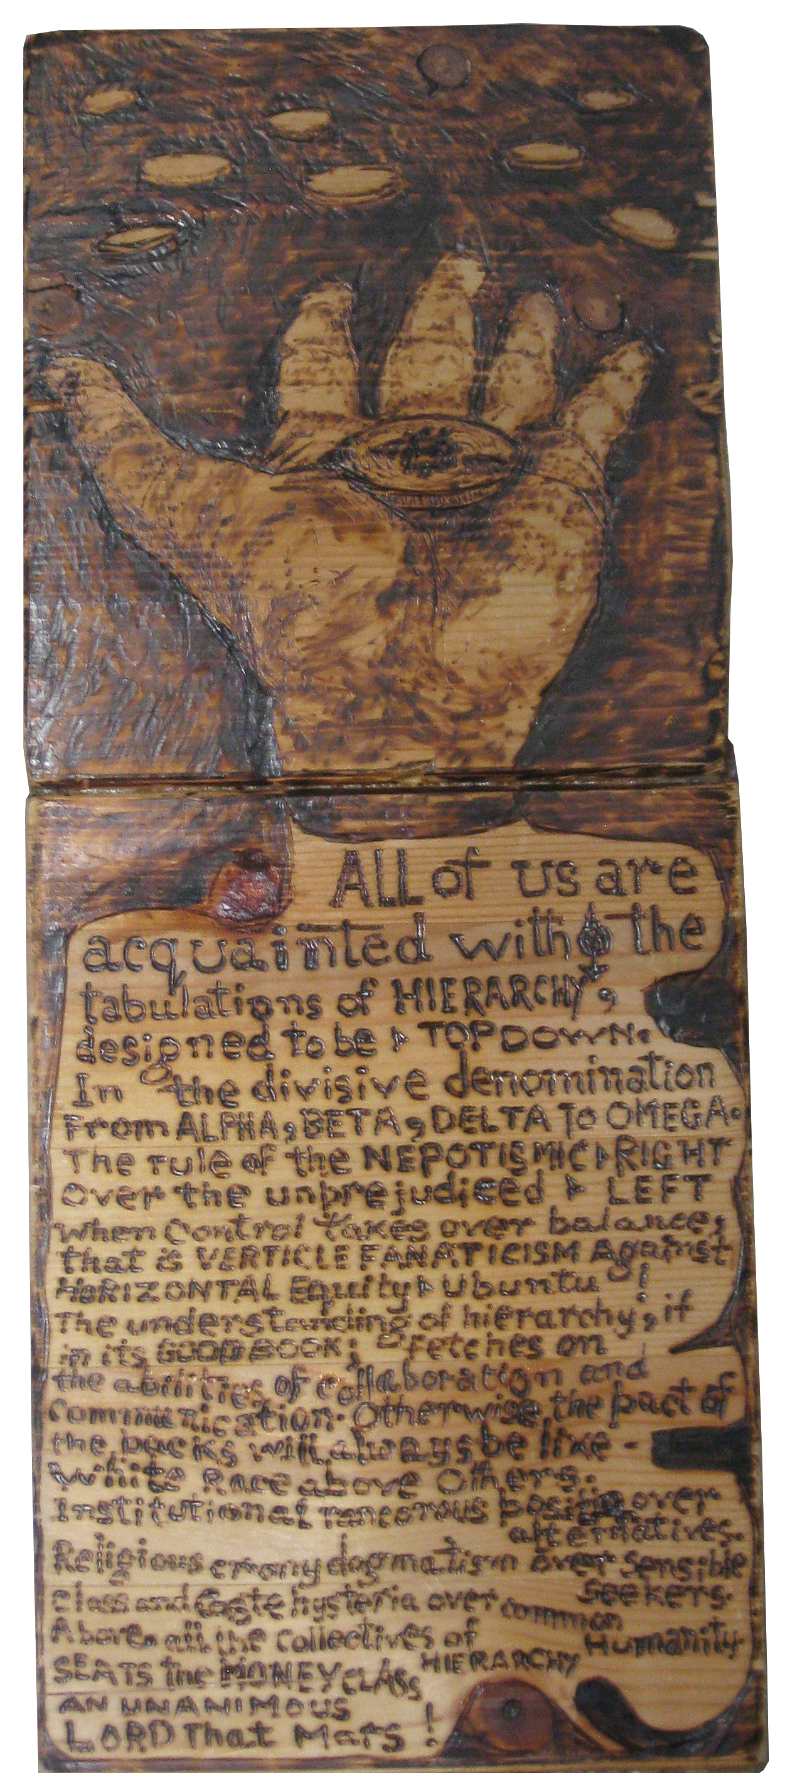 ALL of us are
acquainted with the
tabulations of HIERARCHY,
designed to be TOPDOWN.
In the divisive denomination
From ALPHA, BETA, DELTA To OMEGA.
The rule of the NEPOTISMIC RIGHT
Over the unprejudiced LEFT
when Control takes over balance,
that is VERTICLE FANATICISM Against
HORIZONTAL Equity Ubuntu !
The understanding of hierarchy, if
in its GOOD BOOK; fetches on
the abilities of collaboration and
Communication. Otherwise, the pact of
the bucks will always be like -
White Race above Others.
Institutional rancorous over
alternatives.
Religious crony dogmatism over sensible
seekers.
class and Caste hysteria over common
Humanity.
Above all, the collectives of
HIERARCHY
SEATS the MONEY CLASS
AN UNANIMOUS
LORD That Mars !